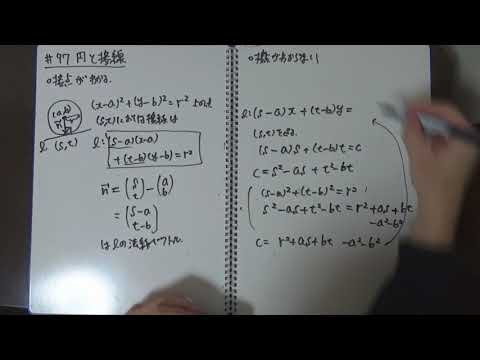 #97 円と接線
○接点がわかる.
(x-a)²+(y-b)²=r² 上の点
(s,t)における接線は
(a,b)
l (s,t)
l: (s-a)(x-a)
+(t-b)(y-b)=r²
n⃗ = (s t) - (a b)
= (s-a t-b)
はlの法線ベクトル.
○接点がわからない
l: (s-a)x+(t-b)y=
(s,t)を通る.
(s-a)s+(t-b)t=c
c=s²-as+t²-bt
(s-a)²+(t-b)²=r²
s²-as+t²-bt=r²+as+bt
-a²-b²
c= r²+as+bt -a²-b²